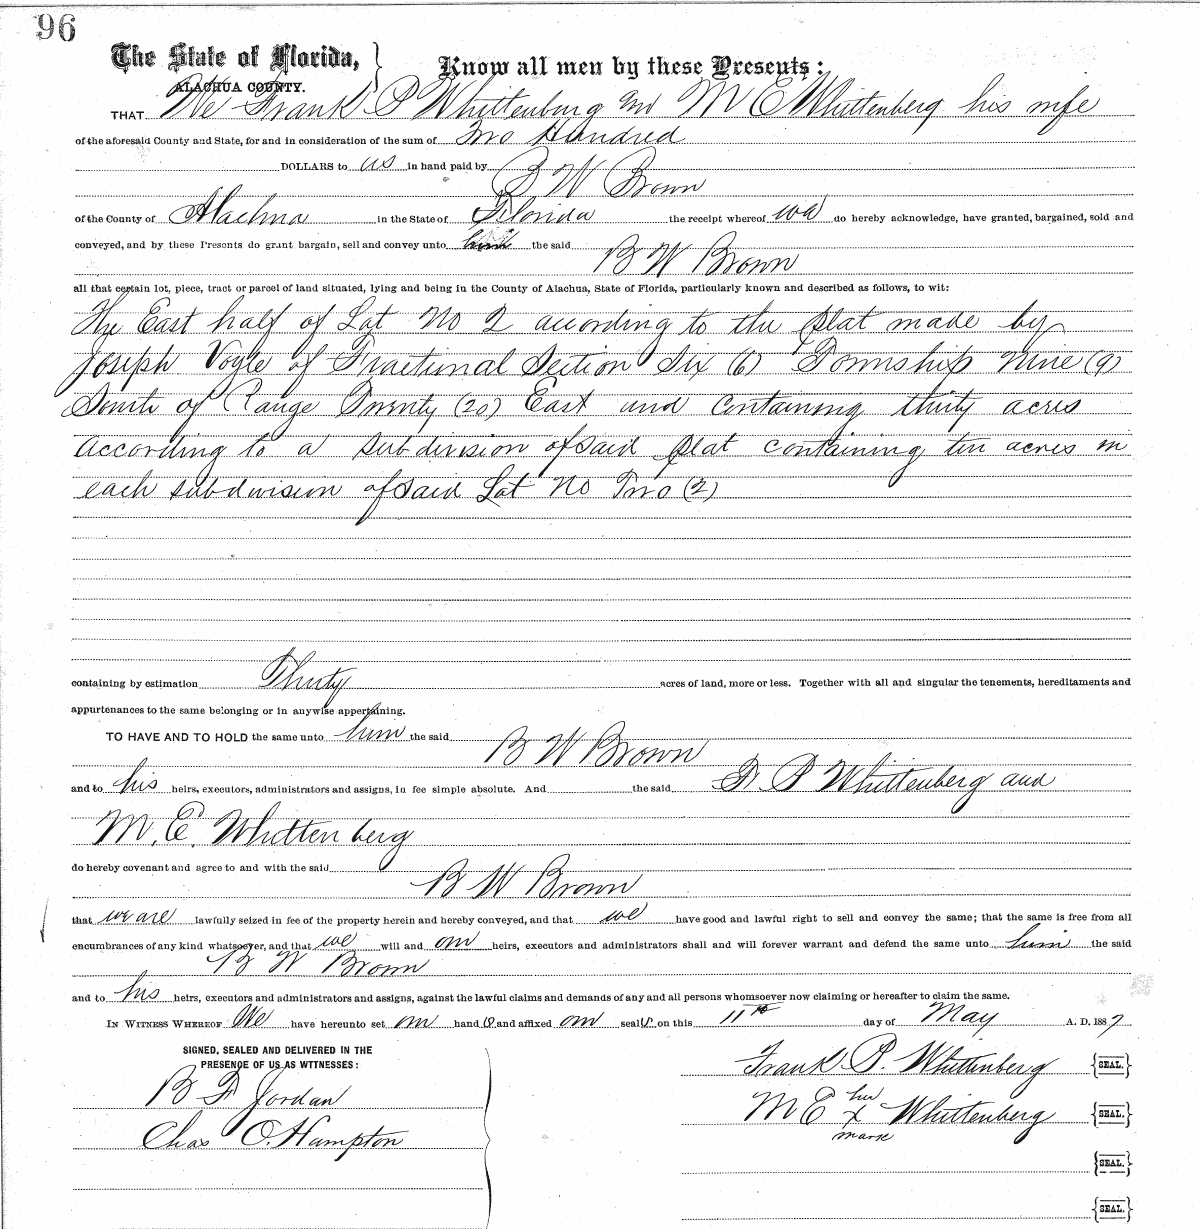 96
The State of Florida,
ALACHUA COUNTY.
Know all men by these Presents:
THAT We Frank P Whittenburg and M E Whittenberg his wife
of the aforesaid County and State, for and in consideration of the sum of Two Hundred
DOLLARS to us in hand paid by
B W Brown
of the County of Alachua in the State of Florida the receipt whereof we do hereby acknowledge, have granted, bargained, sold and
conveyed, and by these Presents do grant bargain, sell and convey unto him the said
B W Brown
all that certain lot, piece, tract or parcel of land situated, lying and being in the County of Alachua, State of Florida, particularly known and described as follows, to wit:
The East half of Lot No 2 according to the plat made by
Joseph Vogle of Fractional Section Six (6) Township Nine (9)
South of Range Twenty (20) East and containing thirty acres
according to a subdivision of said plat containing ten acres in
each subdivision of said Lot No Two (2)
containing by estimation Thirty acres of land, more or less. Together with all and singular the tenements, hereditaments and
appurtenances to the same belonging or in anywise appertaining.
TO HAVE AND TO HOLD the same unto him the said
B W Brown
and to his heirs, executors, administrators and assigns, in fee simple absolute. And the said F. P Whittenberg and
M. E. Whittenberg
do hereby covenant and agree to and with the said
B W Brown
that we are lawfully seized in fee of the property herein and hereby conveyed, and that we have good and lawful right to sell and convey the same; that the same is free from all
encumbrances of any kind whatsoever, and that we will and our heirs, executors and administrators shall and will forever warrant and defend the same unto him the said
B W Brown
and to his heirs, executors and administrators and assigns, against the lawful claims and demands of any and all persons whomsoever now claiming or hereafter to claim the same.
IN WITNESS WHEREOF We have hereunto set our hands and affixed our seals on this 11th day of May A. D. 1887
SIGNED, SEALED AND DELIVERED IN THE
PRESENCE OF US AS WITNESSES:
B F Jordan
Chas O. Hampton
Frank P. Whittenberg SEAL.
her
M E x Whittenberg SEAL.
mark
SEAL.
SEAL.